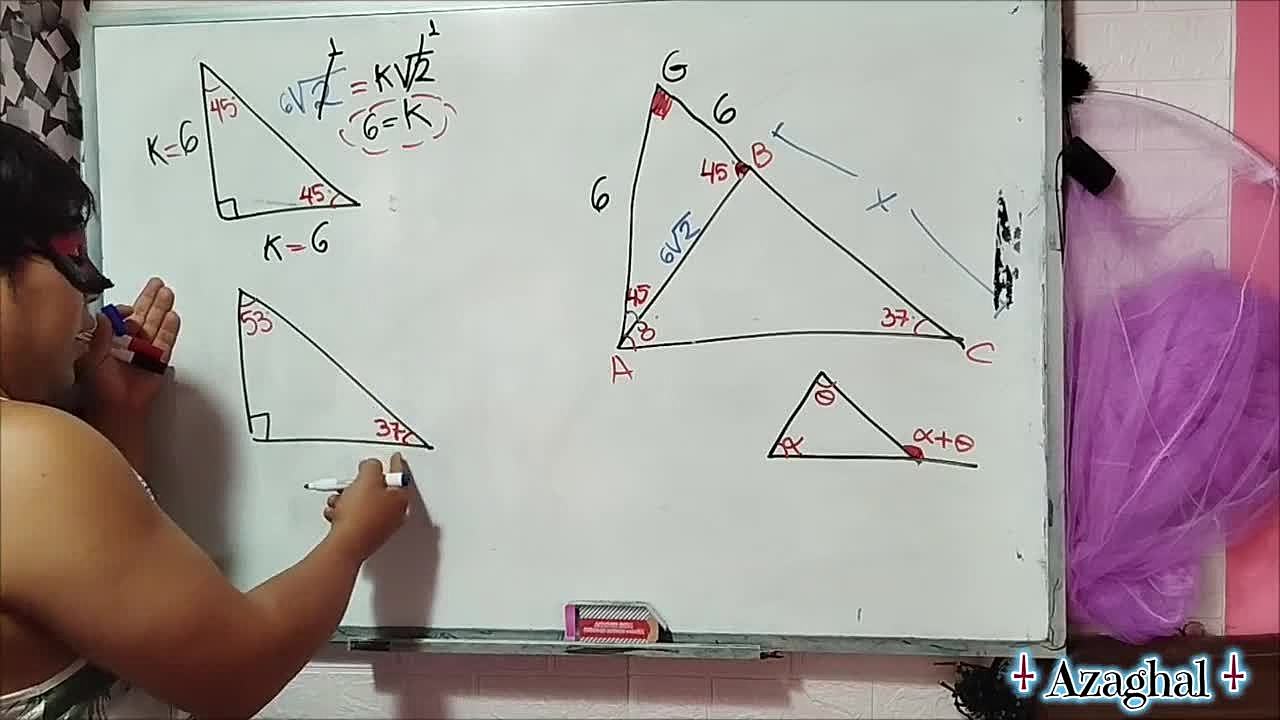 45
K=6
45
K=6
6√2 = K√2
1
1
6=K
53
37
G
6
B
45
6
6√2
x
45
8
37
A
C
θ
α
α+θ
Azaghal